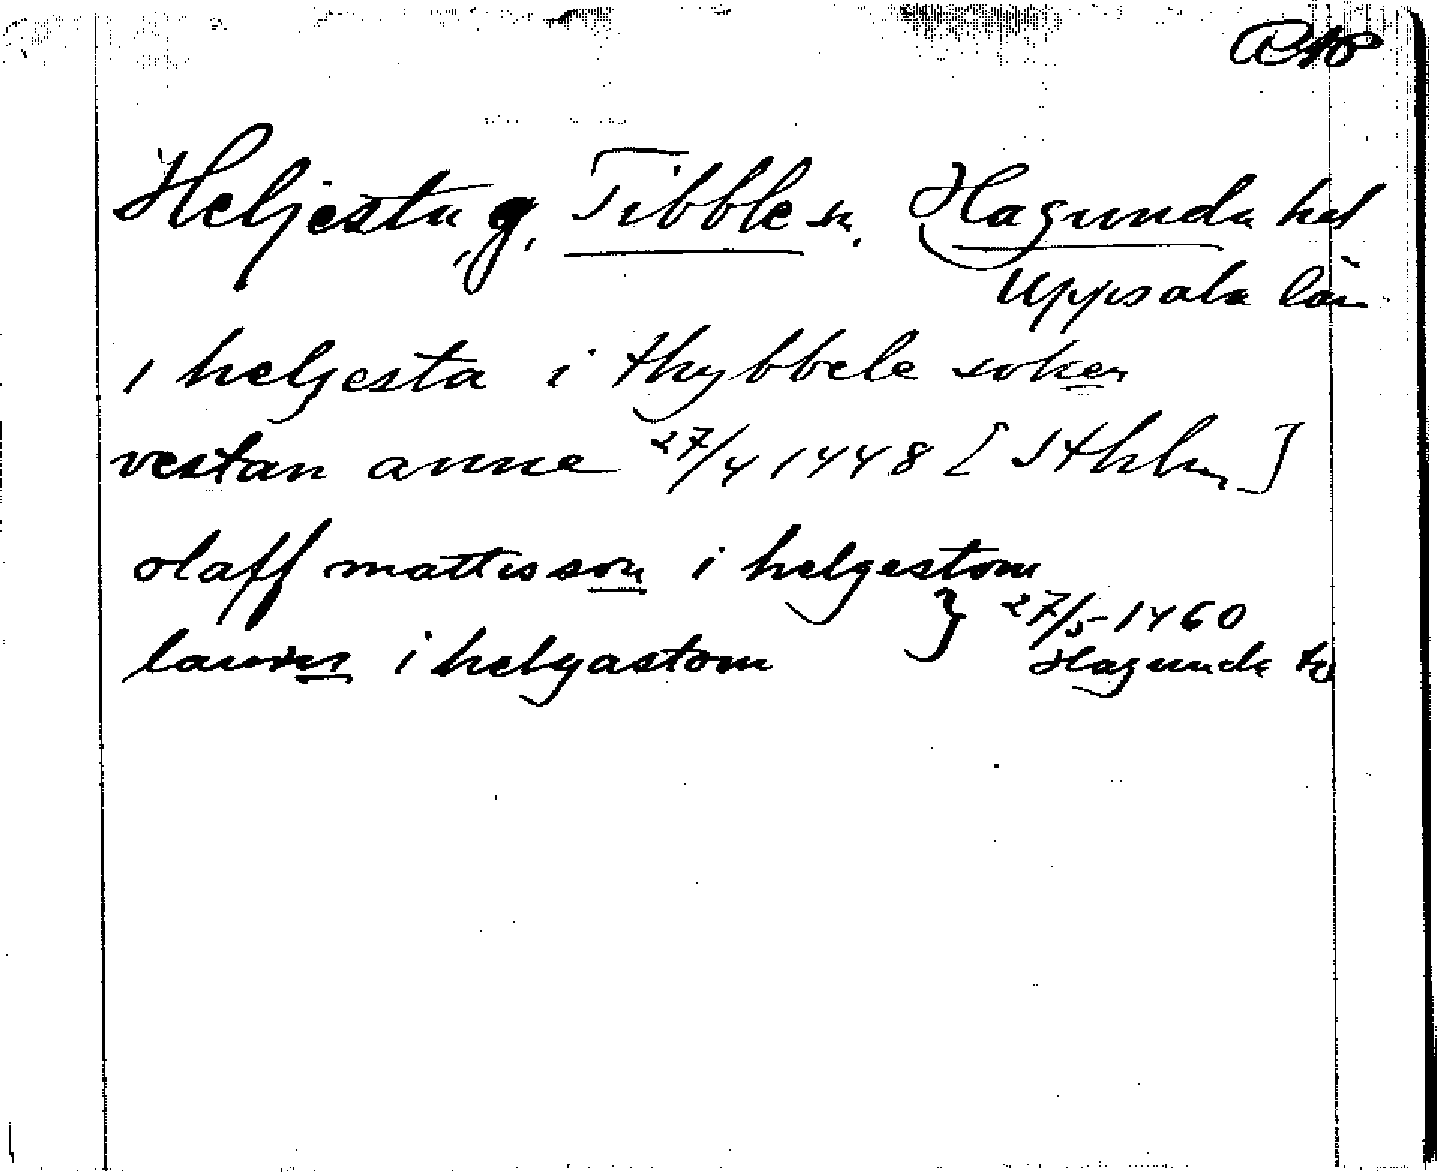 RAP
Heljesta, g, Tibble sn. Hagunda hd
Uppsala län
i heljesta i thybbele soken
vestan anne 27/4 1448 [Sthlm]
olaff mattisson i helgestom
laurins i helgastom } 27/5 1460
Hagunda tg